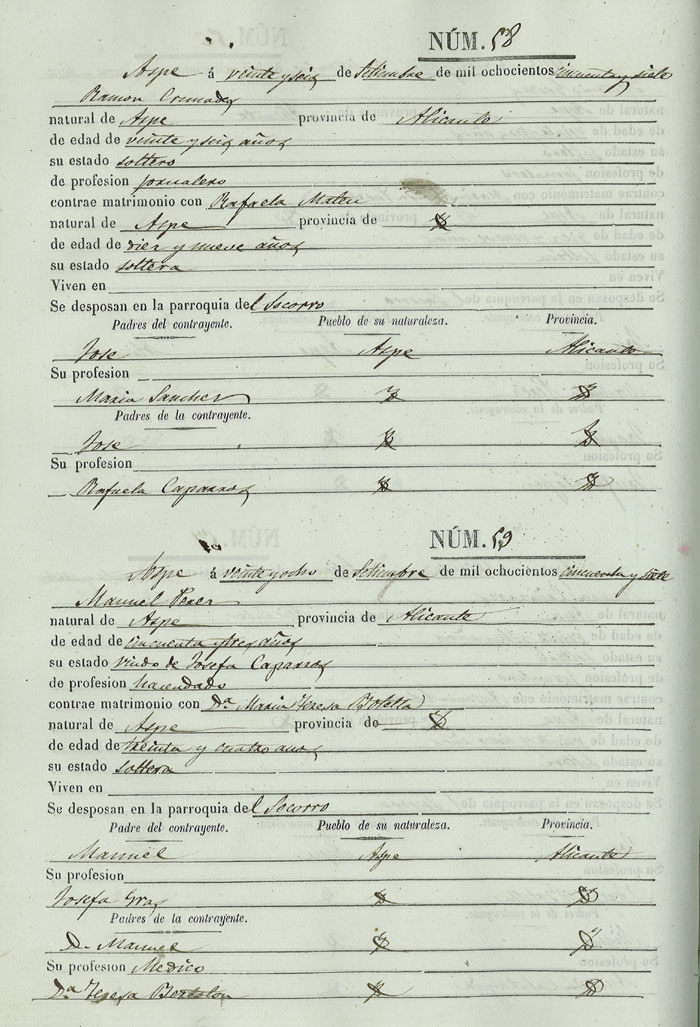 NÚM. 58
Aspe á veinte y seis de Setiembre de mil ochocientos cincuenta y siete
Ramon Cremades
natural de Aspe provincia de Alicante
de edad de veinte y seis años
su estado soltero
de profesion jornalero
contrae matrimonio con Rafaela Mateu
natural de Aspe provincia de
de edad de diez y nueve años
su estado soltera
Viven en
Se desposan en la parroquia del Socorro
Padres del contrayente. Pueblo de su naturaleza. Provincia.
Jose Aspe Alicante
Su profesion
Maria Sanchez
Padres de la contrayente.
Jose
Su profesion
Rafaela Caparros
NÚM. 59
Aspe á veinte y ocho de Setiembre de mil ochocientos cincuenta y siete
Manuel Perez
natural de Aspe provincia de Alicante
de edad de cincuenta y tres años
su estado viudo de Josefa Caparros
de profesion hacendado
contrae matrimonio con Dª Maria Teresa Botella
natural de Aspe provincia de
de edad de treinta y cuatro años
su estado soltera
Viven en
Se desposan en la parroquia del Socorro
Padre del contrayente. Pueblo de su naturaleza. Provincia.
Manuel Aspe Alicante
Su profesion
Josefa
Padres de la contrayente.
D. Manuel
Su profesion Medico
Dª Teresa